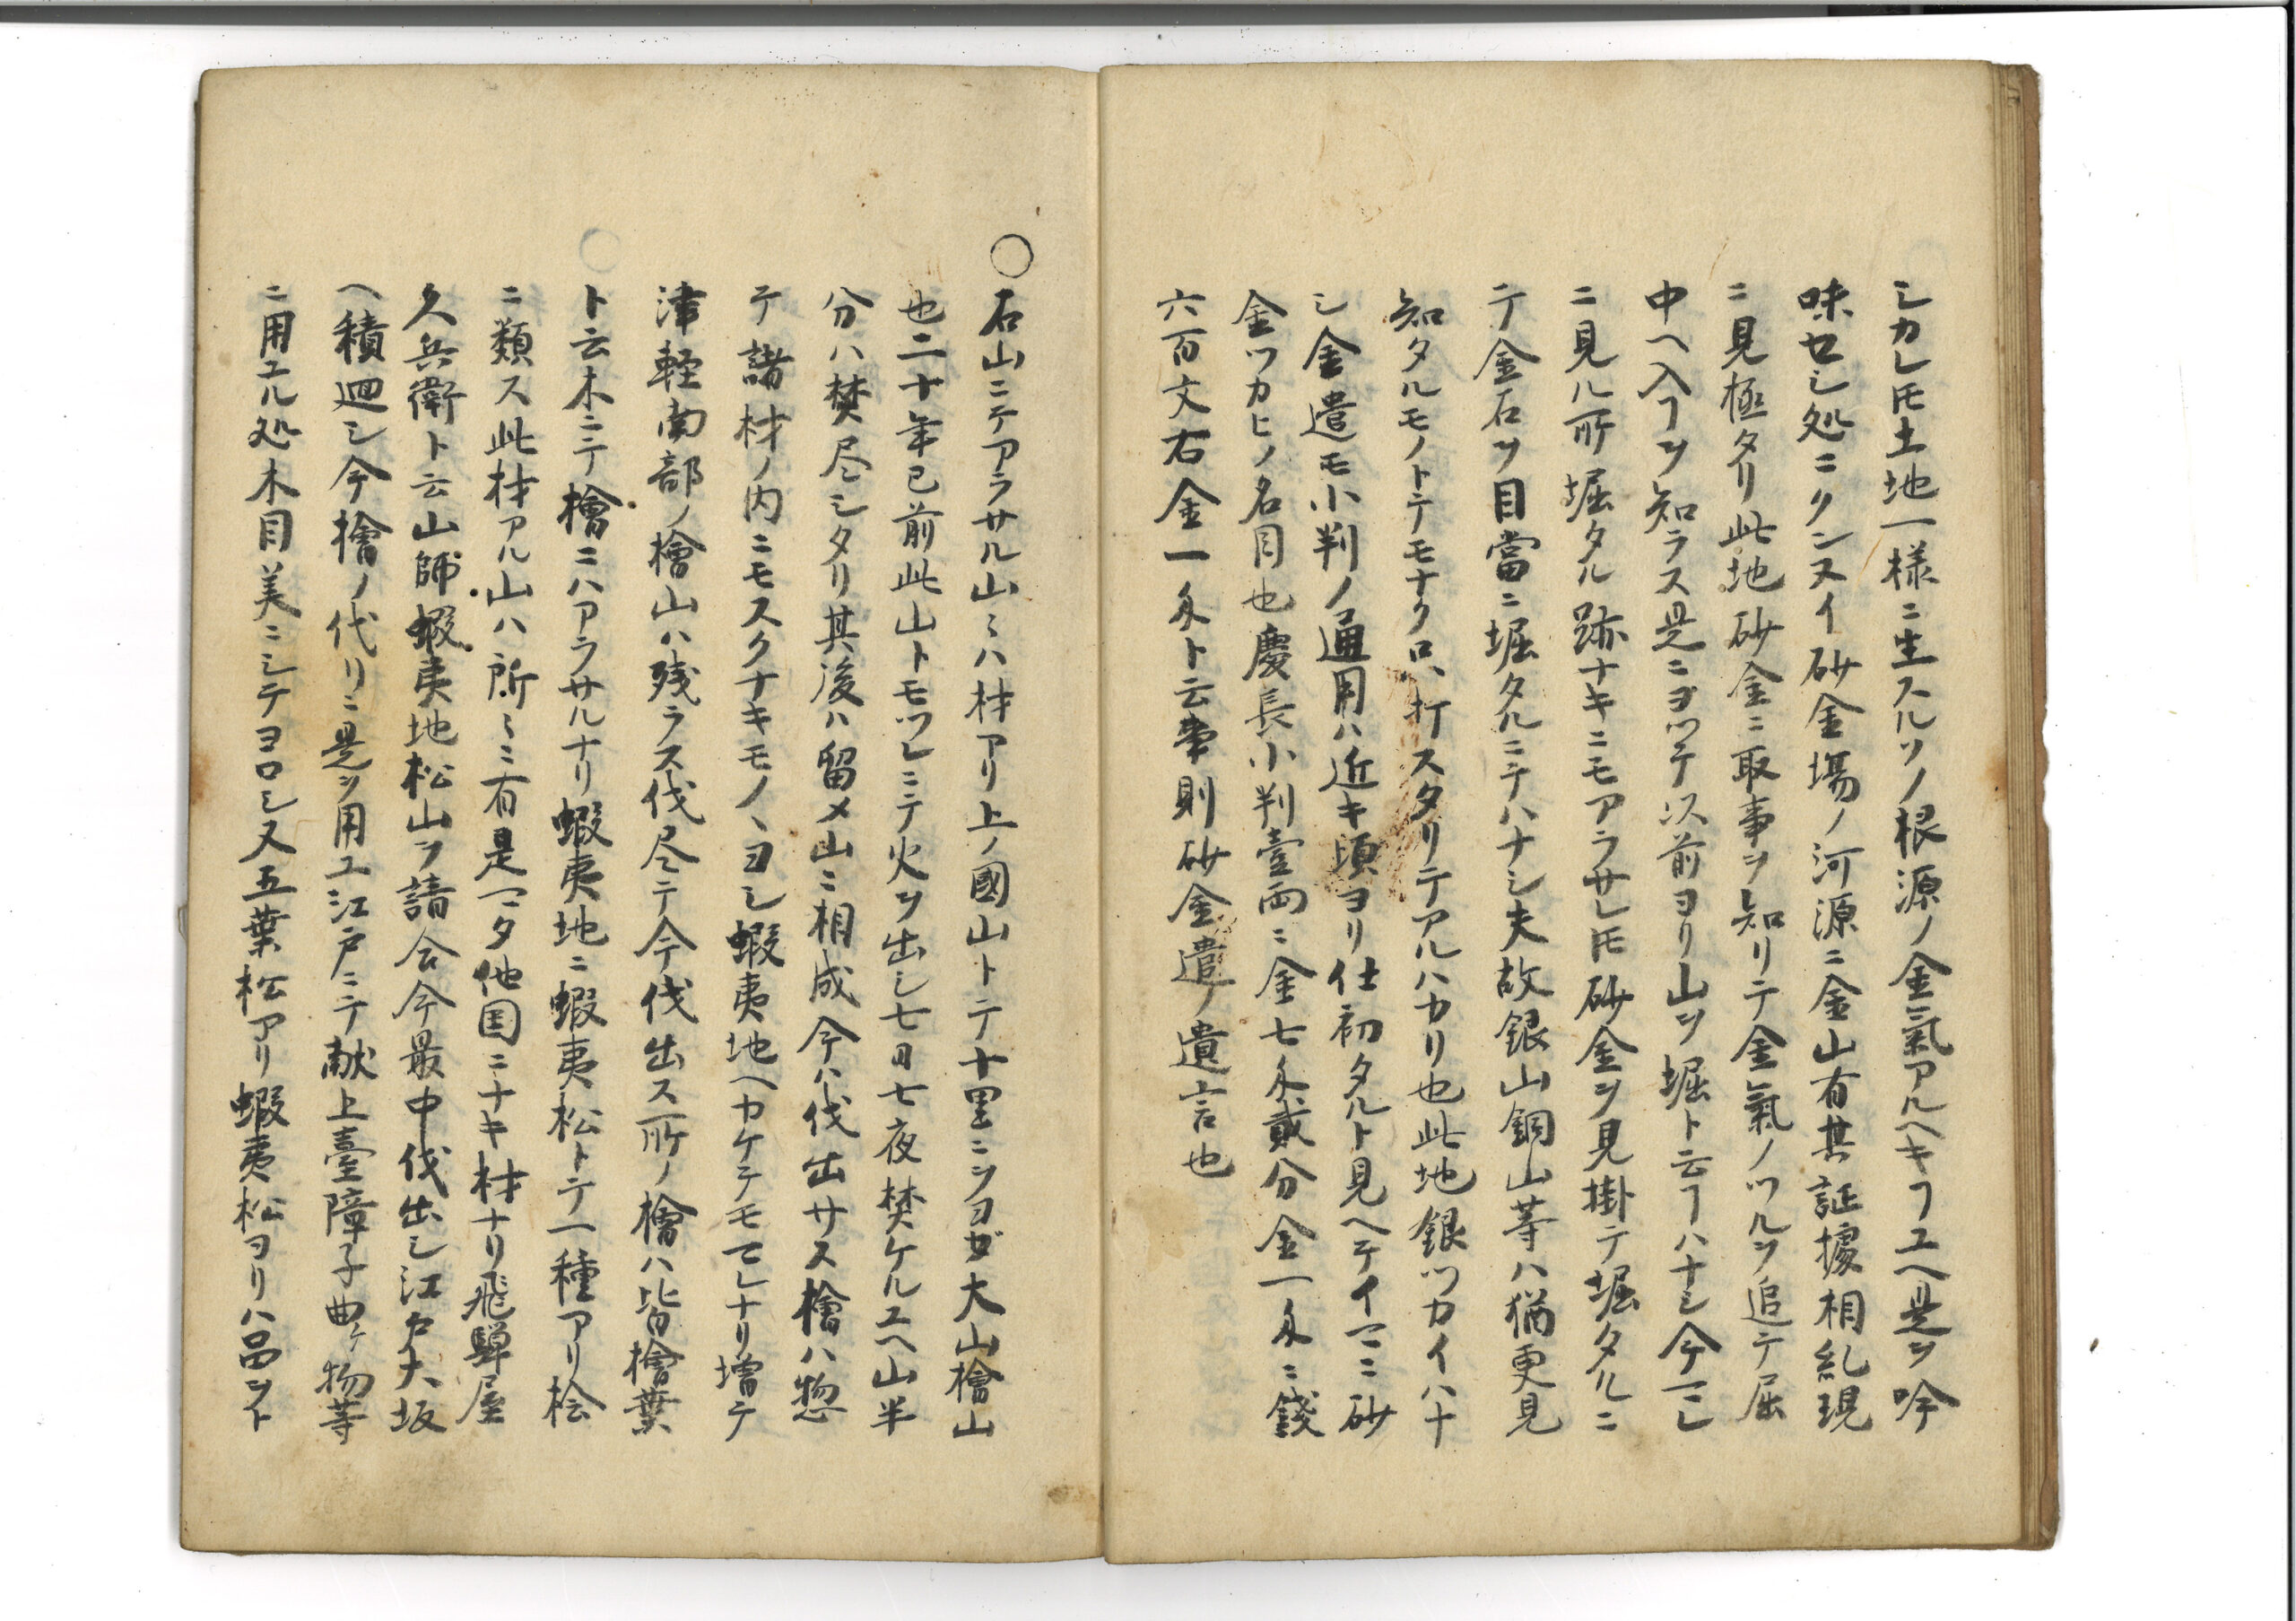 シカレ𪜈土地一様ニ生スルソノ根源ノ金氣アルヘキヿユヘ是ヲ吟
味セシ処ニクンヌイ砂金場ノ河源ニ金山有其証據相糺現
ニ見極タリ此地砂金ニ取事ヲ知リテ金氣ノツルヲ追テ屈
中ヘ入ヿヲ知ラス是ニヨツテ以前ヨリ山ヲ堀ト云ヿハナシ今マレ
ニ見ル所堀タル跡ナキニモアラサレ𪜈砂金ヲ見掛テ堀タルニ
テ金石ヲ目當ニ堀タルニテハナシ夫故銀山銅山等ハ猶更見
知タルモノトテモナクロヽ打スタリテアルハカリ也此地銀ツカイハナ
シ金遣モ小判ノ通用ハ近キ頃ヨリ仕初タルト見ヘテイマニ砂
金ツカヒノ名目也慶長小判壹両ニ金七匁貳分金一匁ニ錢
六百文右金一匁ト云事則砂金遣ノ遺言也
○石山ニテアラサル山ミハ材アリ上ノ國山トテ十里ニツヨガ大山檜山
也二十年已前此山トモツレニテ火ヲ出シ七日七夜焚ケルユヘ山半
分ハ焚尽シタリ其後ハ留メ山ニ相成今ハ伐出サス檜ハ惣
テ諸材ノ内ニモスクナキモノヽヨシ蝦夷地ヘカケテモマレナリ増テ
津軽南部ノ檜山ハ残ラス伐尽テ今伐出ス所ノ檜ハ皆檜葉
ト云木ニテ檜ニハアラサルナリ蝦夷地ニ蝦夷松トテ一種アリ桧
ニ類ス此材アル山ハ所ミニ有是マタ他国ニナキ材ナリ飛騨屋
久兵衛ト云山師蝦夷地松山ヲ請合今最中伐出シ江戸大坂
ヘ積廻シ今檜ノ代リニ是ヲ用ユ江戸ニテ献上臺障子曲ケ物等
ニ用ユル処木目美ニシテヨロシ又五葉松アリ蝦夷松ヨリハ品ヲト